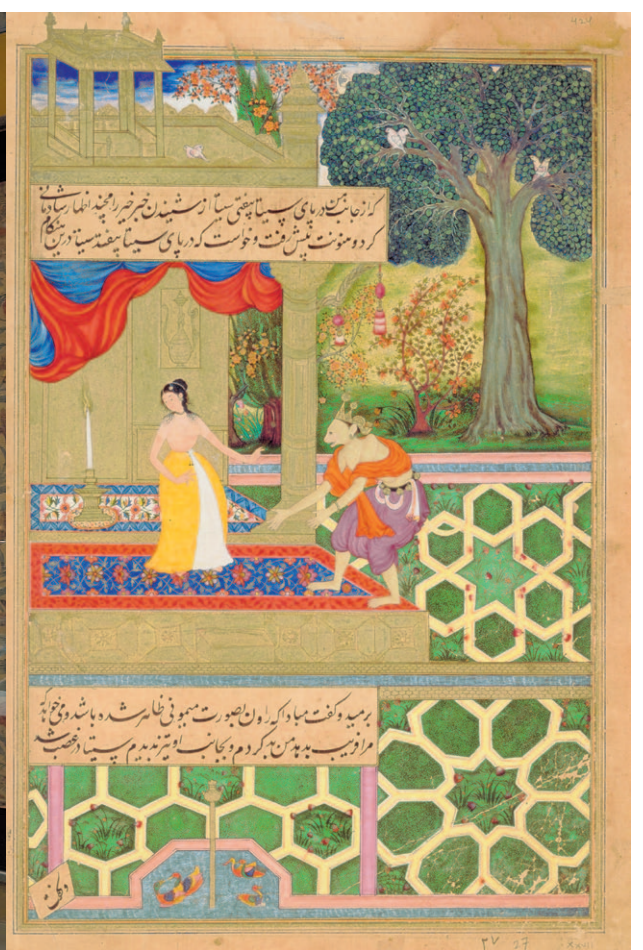 که از جانب من در پای سیتا بیفتی سیتا از شنیدن خبر خیر رامچند اظهار شادمانی
کرد و هنونت پیش رفت و خواست که در پای سیتا بیفتد سیتا درین هنگام
برمید و گفت مبادا که راون بصورت میمونی ظاهر شده باشد و می خواهد
مرا فریب بدهد من کردم و بجانب او تیز ندیدم سیتا در غضب شد